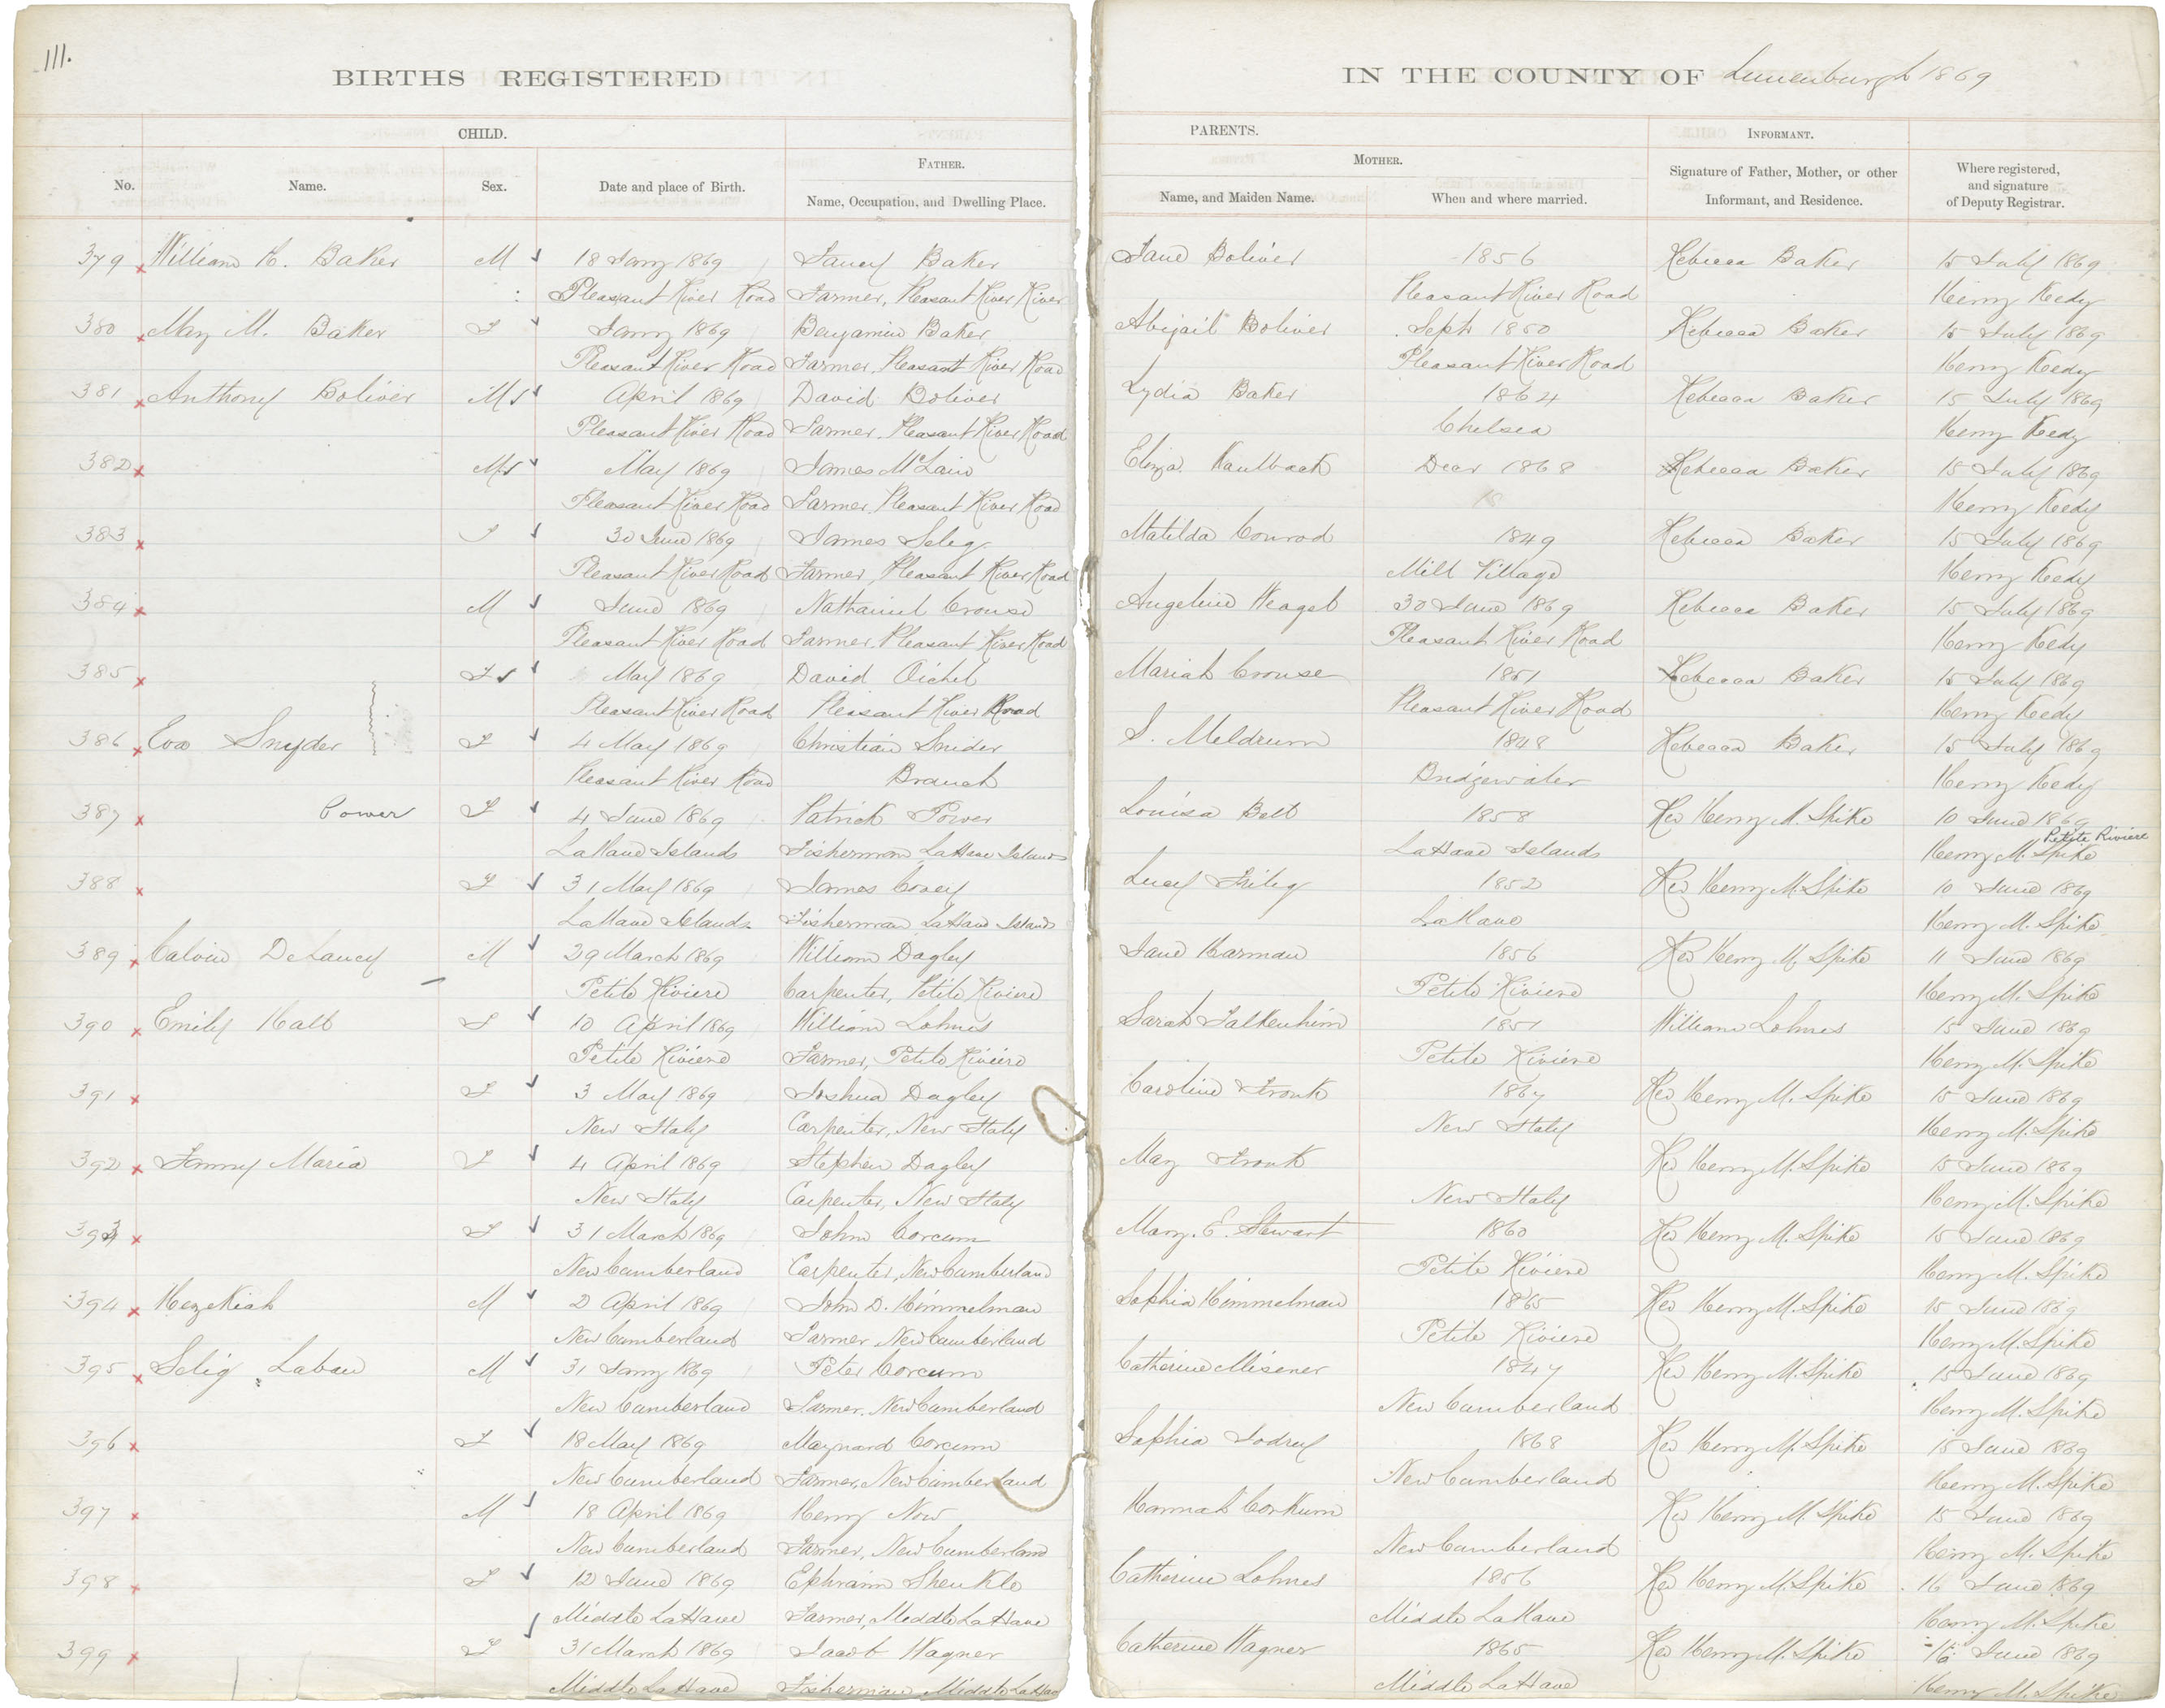 111.
BIRTHS REGISTERED
IN THE COUNTY OF Lunenburgh 1869
CHILD.
PARENTS.
INFORMANT.
No.
Name.
Sex.
Date and place of Birth.
FATHER.
Name, Occupation, and Dwelling Place.
MOTHER.
Name, and Maiden Name.
When and where married.
Signature of Father, Mother, or other
Informant, and Residence.
Where registered,
and signature
of Deputy Registrar.
379 William H. Baker M 18 Jany 1869 Baker Jane Boliver 1856 Rebecca Baker 15 July 1869
Pleasant River Road Farmer, Pleasant River River Pleasant River Road Henry Keedy
380 May M. Baker F Jany 1869 Benjamin Baker Abigail Boliver Sept 1850 Rebecca Baker 15 July 1869
Pleasant River Road Farmer, Pleasant River Road Pleasant River Road Henry Keedy
381 Anthony Boliver M April 1869 David Boliver Lydia Baker 1864 Rebecca Baker 15 July 1869
Pleasant River Road Farmer, Pleasant River Road Chelsea Henry Keedy
382 M May 1869 James McLain Eliza Kaulback Decr 1868 Rebecca Baker 15 July 1869
Pleasant River Road Farmer, Pleasant River Road 18 Henry Keedy
383 F 30 June 1869 James Selig Matilda Conrod 1849 Rebecca Baker 15 July 1869
Pleasant River Road Farmer, Pleasant River Road Mill Village Henry Keedy
384 M June 1869 Nathaniel Crouse Angeline Weagel 30 June 1869 Rebecca Baker 15 July 1869
Pleasant River Road Farmer, Pleasant River Road Pleasant River Road Henry Keedy
385 F May 1869 David Oichel Mariah Crouse 1851 Rebecca Baker 15 July 1869
Pleasant River Road Pleasant River Road Pleasant River Road Henry Keedy
386 Eva Snyder F 4 May 1869 Christian Snider S. Meldrum 1848 Rebecca Baker 15 July 1869
Pleasant River Road Branch Bridgewater Henry Keedy
387 Power F 4 June 1869 Patrick Power Louisa Bell 1858 Rev Henry M. Spike 10 June 1869
Petite Riviere
LaHave Islands Fisherman LaHave Islands LaHave Islands Henry M. Spike
388 F 31 May 1869 James Covey Lucy 1852 Rev Henry M. Spike 10 June 1869
LaHave Islands Fisherman LaHave Islands LaHave Henry M. Spike
389 Calvin DeLancey M 29 March 1869 William Dagley Jane Harman 1856 Rev Henry M Spike 11 June 1869
Petite Riviere Carpenter, Petite Riviere Petite Riviere Henry M. Spike
390 Emily Kalb F 10 April 1869 William Lohnes Sarah Falkenhim 1851 William Lohnes 15 June 1869
Petite Riviere Farmer, Petite Riviere Petite Riviere Henry M. Spike
391 F 3 May 1869 Joshua Dagley Caroline Fronk 1867 Rev Henry M. Spike 15 June 1869
New Italy Carpenter, New Italy New Italy Henry M. Spike
392 Fanny Maria F 4 April 1869 Stephen Dagley May Fronk Rev Henry M. Spike 15 June 1869
New Italy Carpenter, New Italy New Italy Henry M. Spike
393 F 31 March 1869 John Corcum Mary. E. Stewart 1860 Rev Henry M. Spike 15 June 1869
New Cumberland Carpenter, New Cumberland Petite Riviere Henry M. Spike
394 Hezekiah M 2 April 1869 John D. Himmelman Sophia Himmelman 1865 Rev Henry M. Spike 15 June 1869
New Cumberland Farmer New Cumberland Petite Riviere Henry M. Spike
395 Selig Laban M 31 Jany 1869 Peter Corcum Catherine Misener 1847 Rev Henry M. Spike 15 June 1869
New Cumberland Farmer. New Cumberland New Cumberland Henry M. Spike
396 F 18 May 1869 Maynard Corcum Sophia 1868 Rev Henry M. Spike 15 June 1869
New Cumberland Farmer, New Cumberland New Cumberland Henry M. Spike
397 M 18 April 1869 Henry Now Hannah Corkum Rev Henry M Spike 15 June 1869
New Cumberland Farmer, New Cumberland New Cumberland Henry M. Spike
398 F 12 June 1869 Ephraim Shenkle Catherine Lohnes 1856 Rev Henry M. Spike 16 June 1869
Middle LaHave Farmer, Middle LaHave Middle LaHave Henry M. Spike
399 F 31 March 1869 Jacob Wagner Catherine Wagner 1865 Rev Henry M. Spike 16 June 1869
Middle LaHave Fisherman Middle LaHave Middle LaHave Henry M Spike